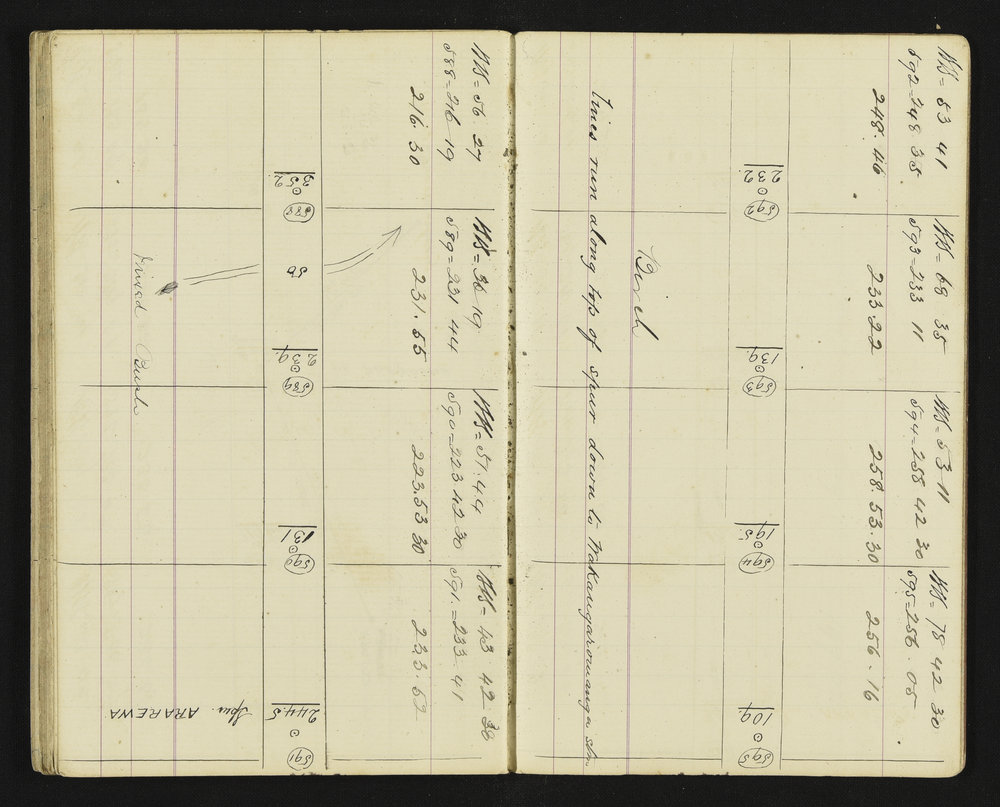 = 56 27
588 = 216 19
216. 30
352
588
= 36 19
589 = 231 44
231. 55
56
239.
589
mixed Bush
= 51.44
590 = 223 42 30
223. 53 30
131
590
= 43 42 30
591. = 233. 41
233. 52
244.5
591
Spur ARAREWA
= 53 41
592 = 248 35
248. 46
232.
592
= 68 35
593 = 233 11
233 22
139.
593
= 53 11
594 = 258 42 30
258. 53. 30
195.
594
= 78 42 30
595 = 256. 05
256. 16
109.
595
Birch
Lines run along top of spur down to Wakaugarouanga Stm.